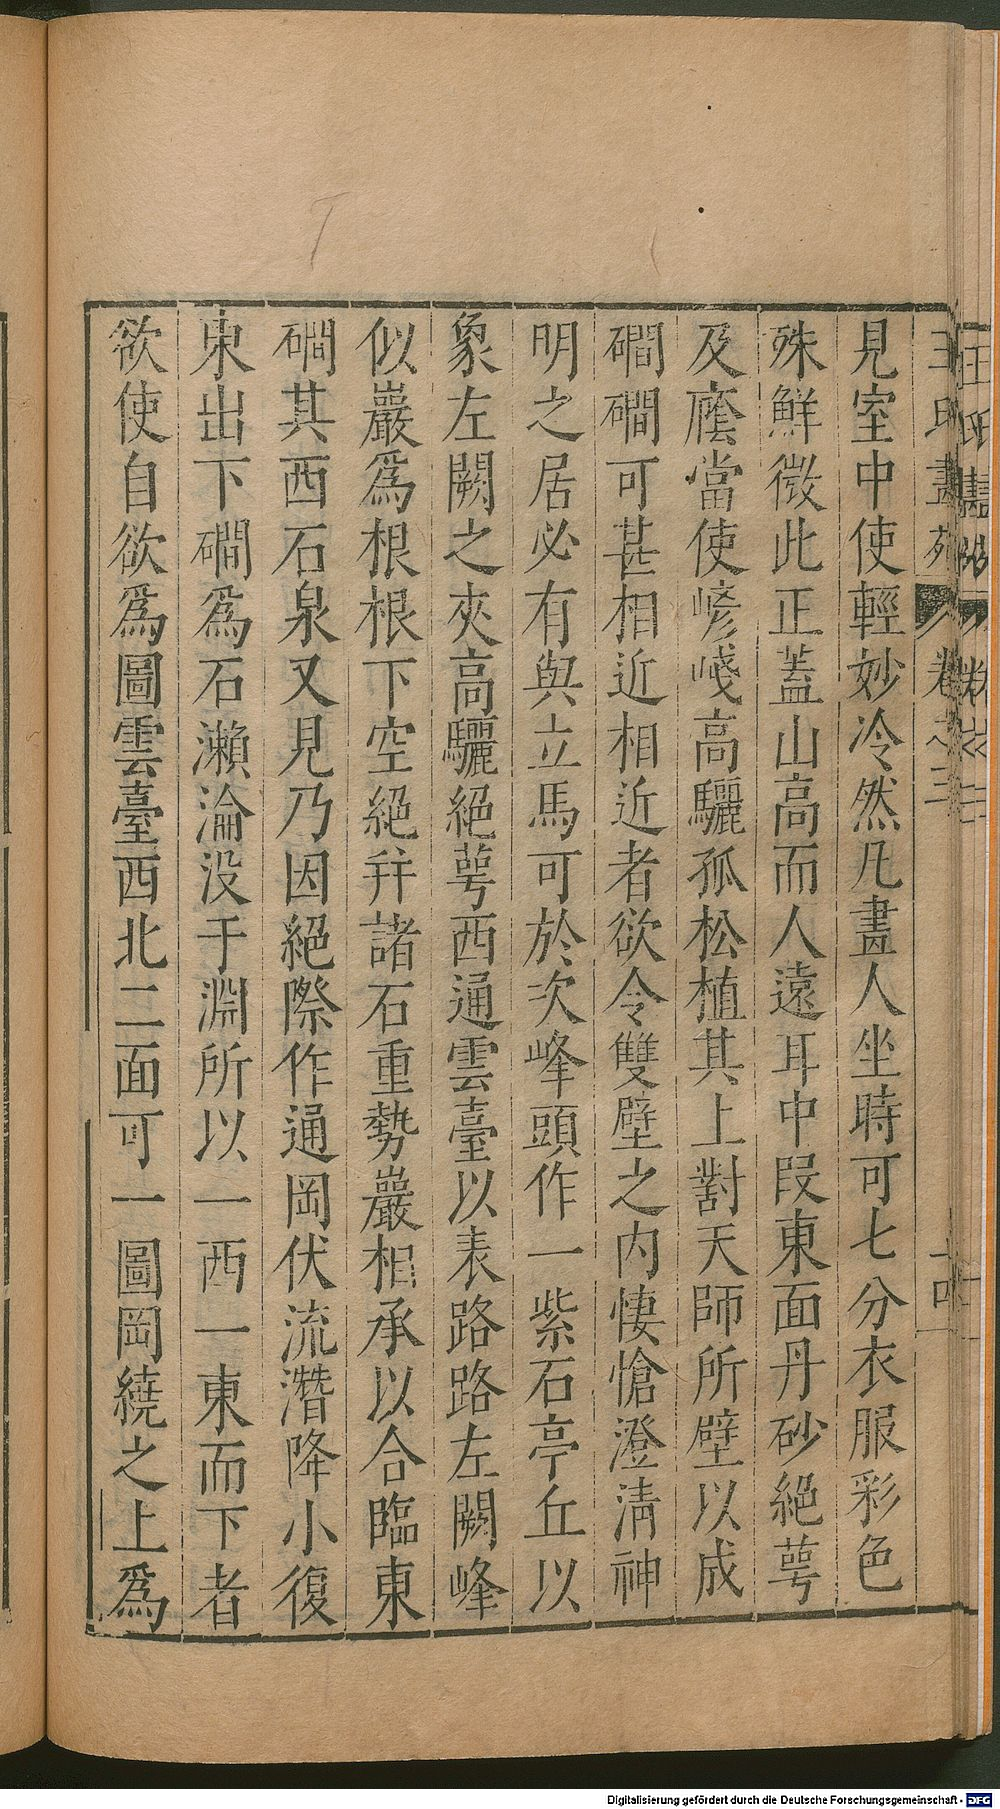 王氏畫苑 卷之三 十四
見室中使輕妙冷然凡畫人坐時可七分衣服彩色
殊鮮微此正蓋山高而人遠耳中段東面丹砂絕萼
及䕃當使嵃嶘高驪孤松植其上對天師所壁以成
磵磵可甚相近相近者欲令雙壁之内悽愴澄淸神
明之居必有與立馬可於次峰頭作一紫石亭丘以
象左闕之夾高驪絕萼西通雲臺以表路路左闕峰
似巖爲根根下空絕幷諸石重勢巖相承以合臨東
磵其西石泉又見乃因絕際作通岡伏流潛降小復
東出下磵爲石瀨淪没于淵所以一西一東而下者
欲使自欲爲圖雲臺西北二面可一圖岡繞之上爲
Digitalisierung gefördert durch die Deutsche Forschungsgemeinschaft - DFG